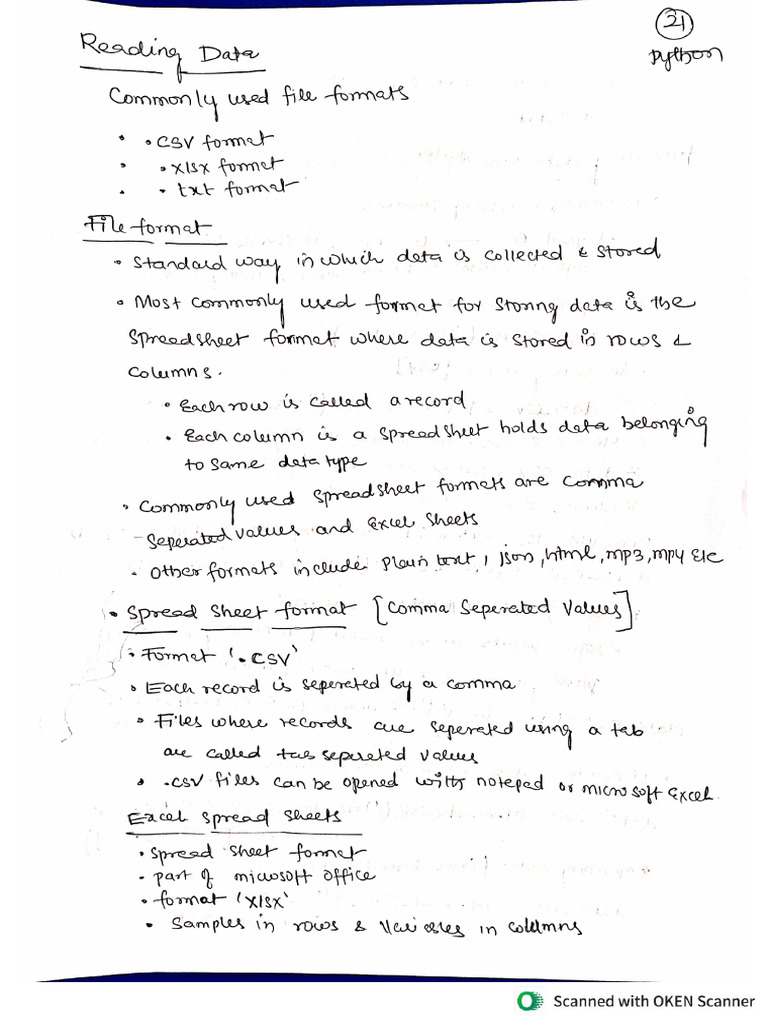 21
Python
Reading Data
Commonly used file formats
• .CSV format
• .xlsx format
• .txt format
File format
• Standard way in which data is collected & stored
• Most commonly used format for storing data is the
spreadsheet format where data is stored in rows &
columns.
• Each row is called a record
• Each column is a spreadsheet holds data belonging
to same data type
• Commonly used spreadsheet formats are comma
-Seperated values and Excel sheets
• Other formats include plain text, json, html, mp3, mp4 etc
• Spread Sheet format [Comma Seperated Values]
• Format '.CSV'
• Each record is seperated by a comma
• Files where records are seperated using a tab
are called tab seperated values
• .csv files can be opened with notepad or microsoft Excel.
Excel Spread Sheets
• Spread sheet format
- part of microsoft office
• format 'xlsx'
• Samples in rows & Variables in columns
Scanned with OKEN Scanner